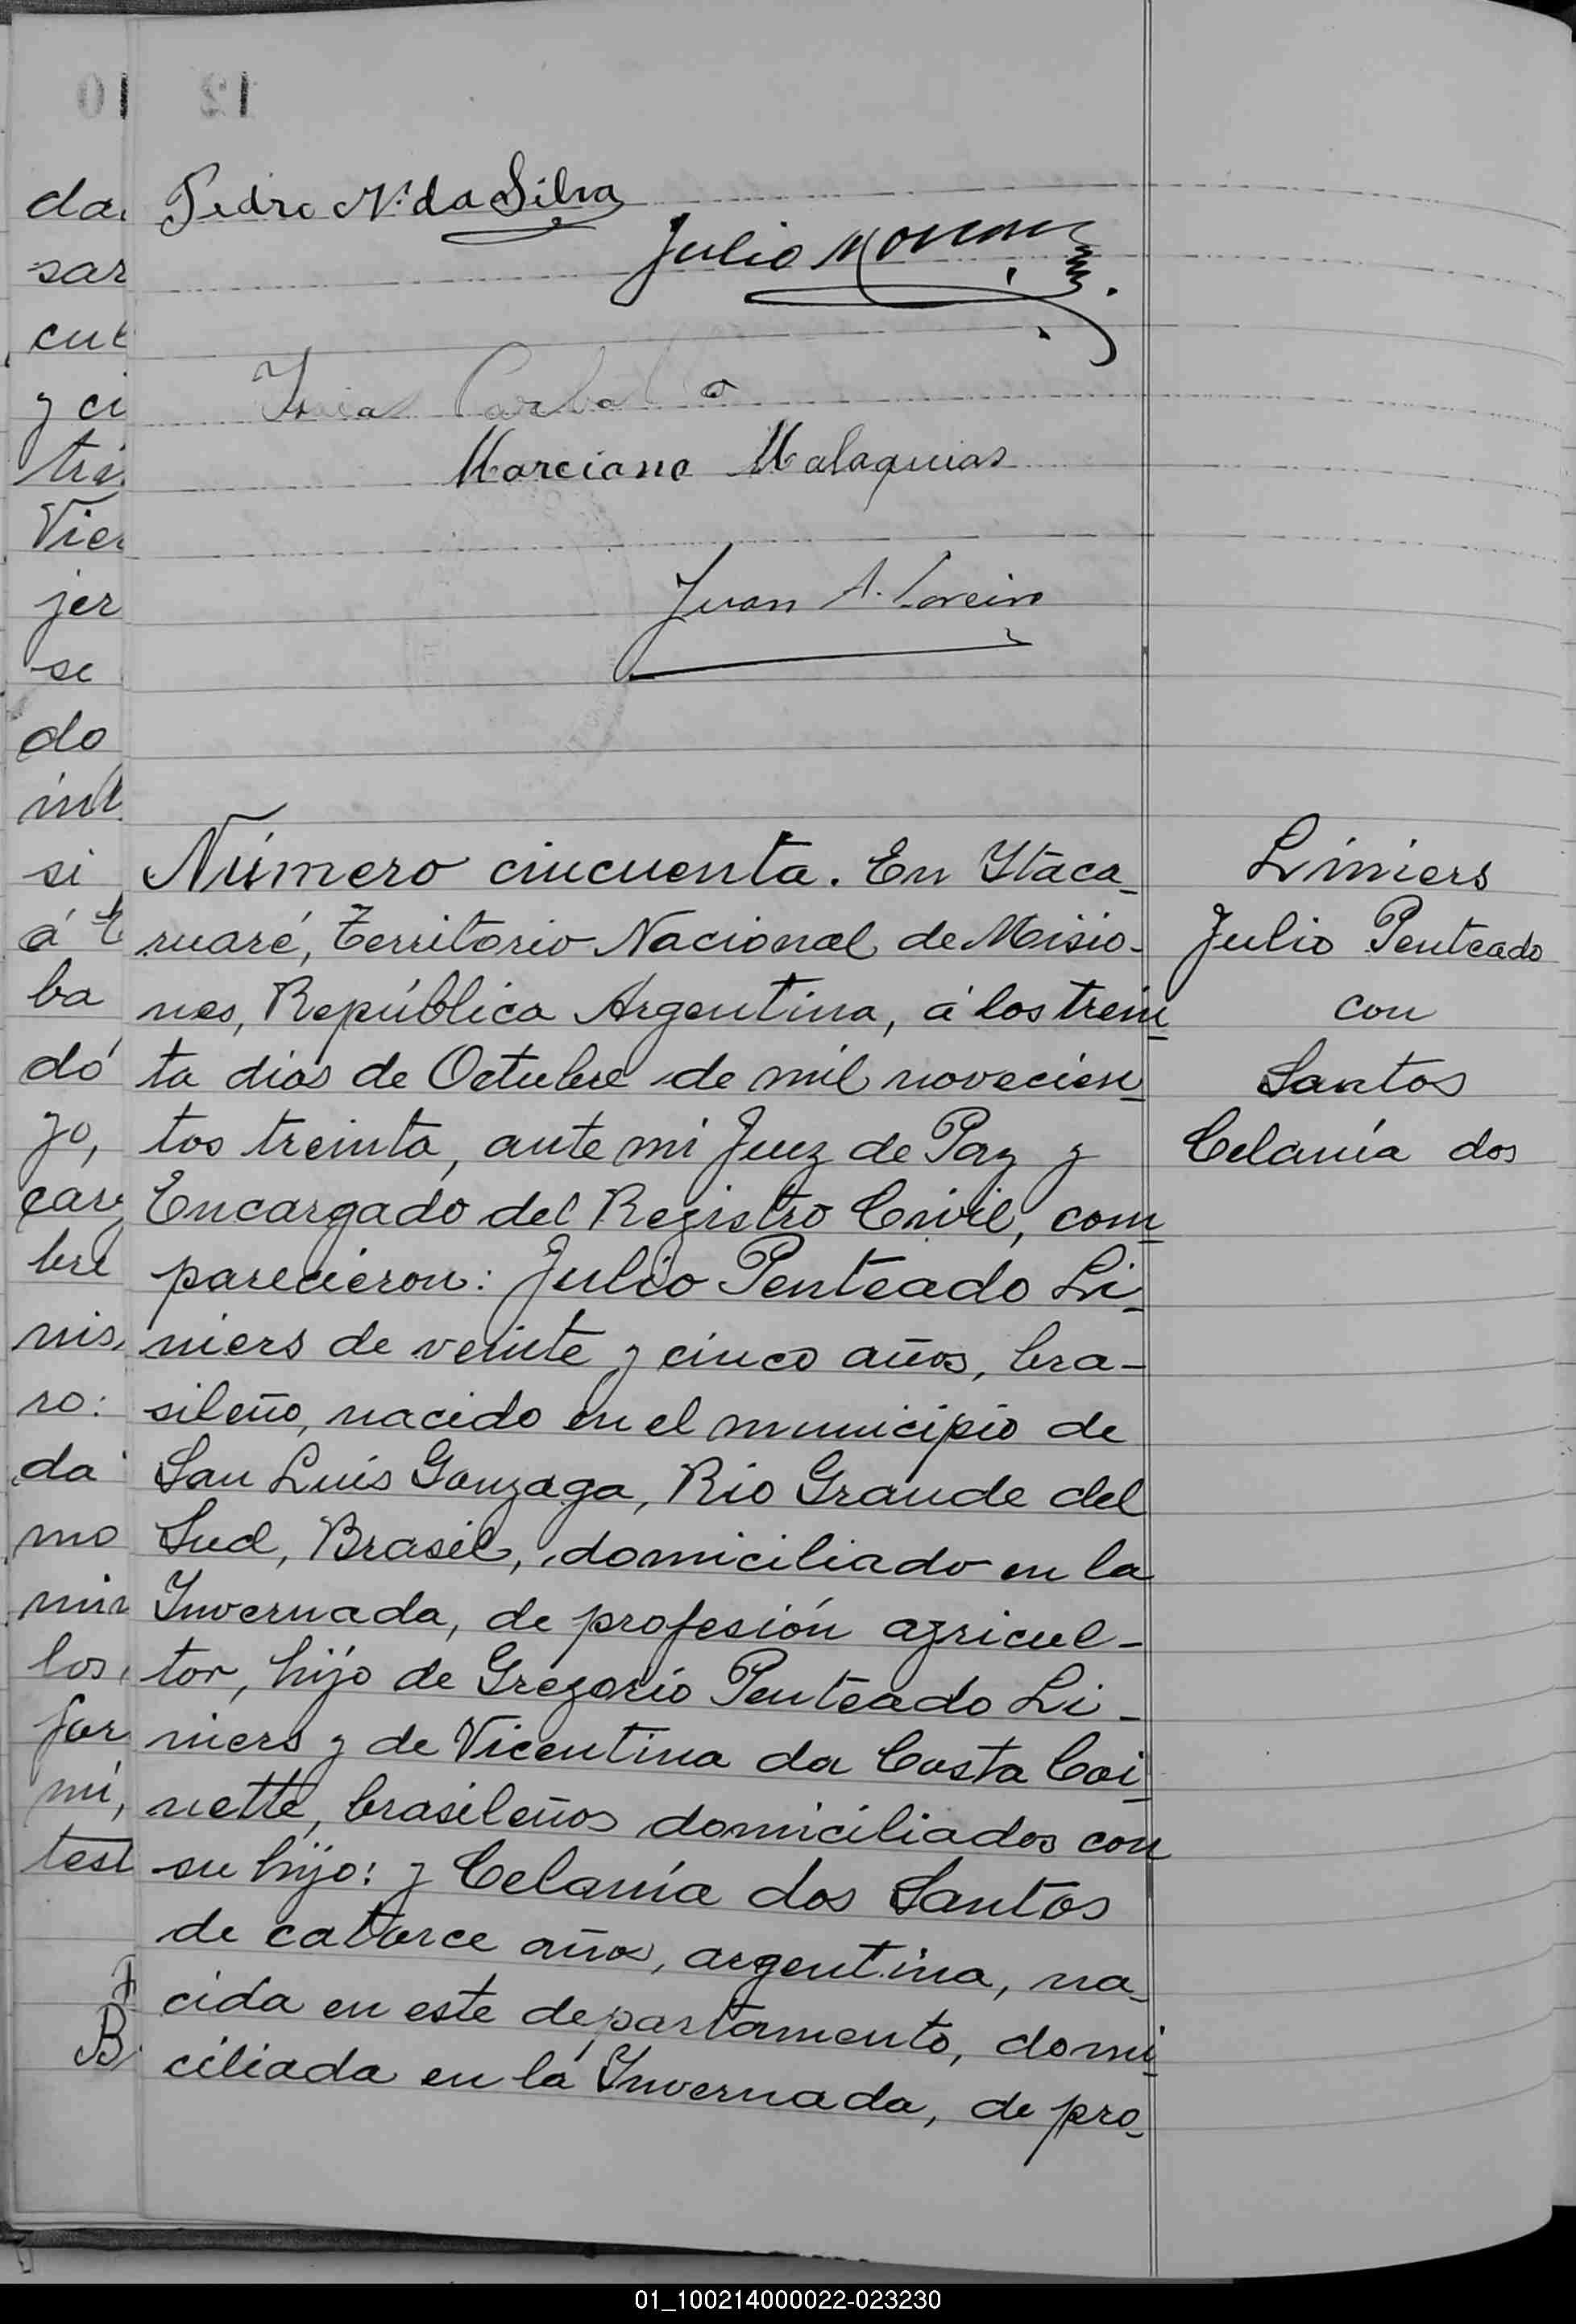 Pedro N. da Silva
Julio
Marciano Malaquias
Juan A.
Número cincuenta. En Itaca-
ruaré, Territorio Nacional de Misio-
nes, República Argentina, á los trein
ta dias de Octubre de mil novecien
tos treinta, ante mi Juez de Paz y
Encargado del Registro Civil, com
parecieron: Julio Penteado Li-
niers de veinte y cinco años, bra-
sileño, nacido en el municipio de
San Luis Gonzaga, Rio Grande del
Sud, Brasil, domiciliado en la
Invernada, de profesión agricul-
tor, hijo de Gregorio Penteado Li-
niers y de Vicentina da Costa Coi-
nette, brasileños domiciliados con
su hijo: y Celanía dos Santos
de catorce años, argentina, na-
cida en este departamento, domi-
ciliada en la Invernada, de pro-
Liniers
Julio Penteado
con
Santos
Celanía dos
da
sar
cut
y ci
tri
Vier
jer
se
do
int
si
á t
ba
dó
yo,
car
bre
nis
ro:
da
mo
min
los,
for
mi,
test
B
10
12
01_100214000022-023230